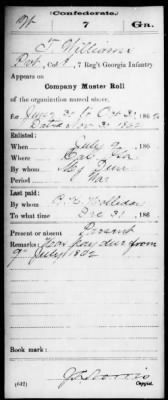 Confederate.
7
Ga.
T. Williams
Pvt, Co. 7 Reg't Georgia Infantry
Appears on
Company Muster Roll
of the organization named above,
for to Oct 31, 186
Dated Nov 3 1862
Enlisted:
When July 9, 186
Where
By whom Maj
Period War
Last paid:
By whom
To what time Dec 31, 186
Present or absent Present
Remarks: Has pay due from
9th July 1862
Book mark:
(642)
Copyist.